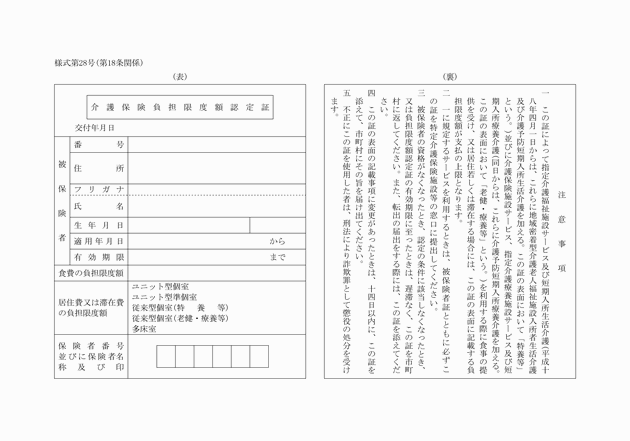 様式第28号(第18条関係)
(表)
介護保険負担限度額認定証
交付年月日
被保険者
番号
住所
フリガナ
氏名
生年月日
適用年月日
から
有効期限
まで
食費の負担限度額
居住費又は滞在費
の負担限度額
ユニット型個室
ユニット型準個室
従来型個室(特養等)
従来型個室(老健・療養等)
多床室
保険者番号
並びに保険者名
称及び印
(裏)
注意事項
一 この証によって指定介護福祉施設サービス及び短期入所生活介護(平成十
八年四月一日からは、これらに地域密着型介護老人福祉施設入所者生活介護
及び介護予防短期入所生活介護を加える。この証の表面において「特養等」
という。)並びに介護保険施設サービス、指定介護療養施設サービス及び短
期入所療養介護(同日からは、これらに介護予防短期入所療養介護を加える。
この証の表面において「老健・療養等」という。)を利用する際に食事の提
供を受け、又は居住若しくは滞在する場合には、この証の表面に記載する負
担限度額が支払の上限となります。
二 一に規定するサービスを利用するときは、被保険者証とともに必ずこ
の証を特定介護保険施設等の窓口に提出してください。
三 被保険者の資格がなくなったとき、認定の条件に該当しなくなったとき、
又は負担限度額認定証の有効期限に至ったときは、遅滞なく、この証を市町
村に返してください。また、転出の届出をする際には、この証を添えてくだ
さい。
四 この証の表面の記載事項に変更があったときは、十四日以内に、この証を
添えて、市町村にその旨を届け出てください。
五 不正にこの証を使用した者は、刑法により詐欺罪として懲役の処分を受け
ます。